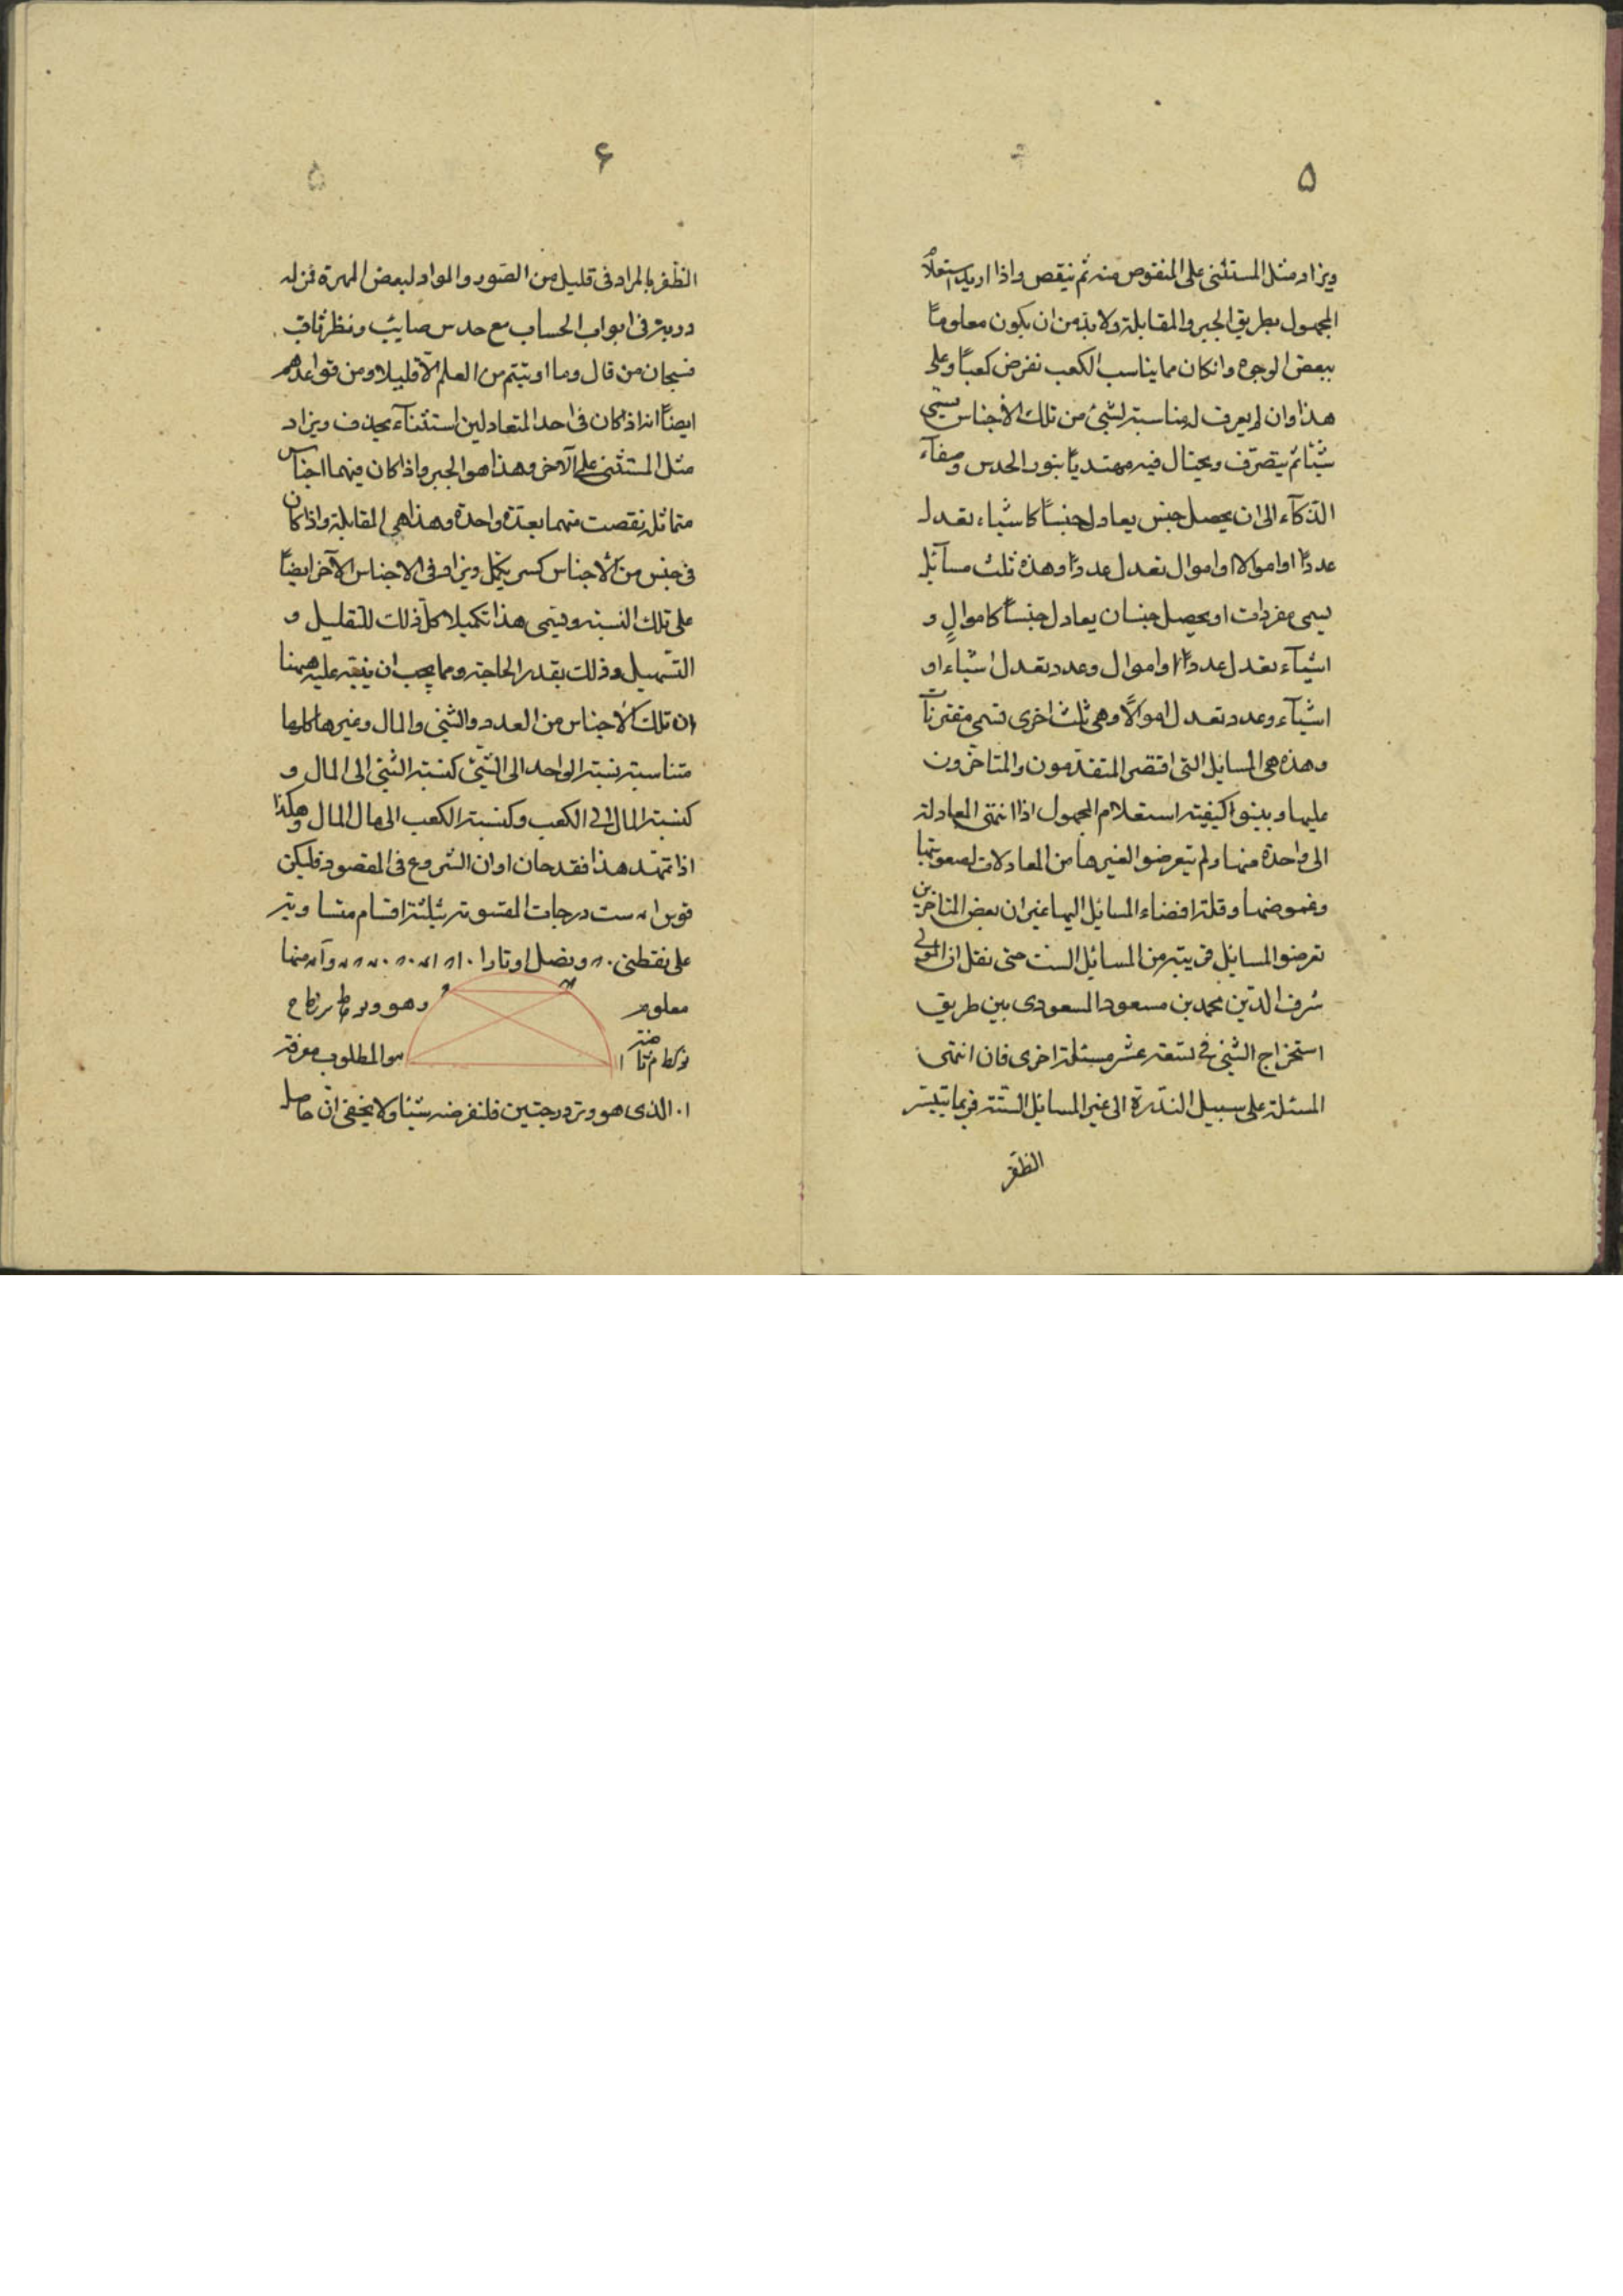 ۵
ويزاد مثل المستثنى على المنقوص منه ثم ينقص واذا اريد استعلام
المجهول بطريق الجبر والمقابلة ولا بد من ان يكون معلوماً
ببعض الوجوه وانكان مما يناسب الكعب نفرض كعباً وعلى
هذا وان لم يعرف له مناسبة لشئ من تلك الأجناس يسمى
شيئا ثم يتصرف ويحتال فيه مهتدياً بنور الحدس وصفآء
الذكآء الى ان يحصل جنس يعادل جنساً كاشياء تعدل
عدداً او اموالا او اموال تعدل عدداً وهذه ثلث مسآئل
يسمى مفردات او يحصل جنسان يعادل جنساً كاموالٍ و
اشيآء تعدل عدداً او اموال وعدد تعدل اشياء او
اشيآء وعدد تعدل اموالاً وهى ثلث اخرى تسمى مقترنآت
وهذه هى المسايل التى اقتصر المتقدمون والمتاخرون
عليها وبينوا كيفية استعلام المجهول اذا انتهى المعادلة
الى واحدة منها ولم يتعرضوا لغيرها من المعادلات لصعوبتها
وغموضها وقلة افضاء المسايل اليها غير ان بعض المتاخرين
تعرضوا لمسايل قريبة من المسائل الست حتى نقل ان المولى
شرف الدين محمد بن مسعود المسعودى بين طريق
استخراج الشئ فى تسعة عشر مسئلة اخرى فان انتهى
المسئلة على سبيل الندرة الى غير المسايل الستة فربما يتيسر
الظفر
۶
الظفر بالمراد فى قليل من الصور والمواد لبعض المهرة فمن له
دربة فى ابواب الحساب مع حدس صايب ونظر ثاقب
فسبحان من قال وما اوتيتم من العلم الّا قليلا ومن قواعدهم
ايضاً انه اذا كان فى احد المتعادلين استثنآء يحذف ويزاد
مثل المستثنى على الآخر وهذا هو الجبر واذا كان فيهما اجناس
متماثلة نقصت منهما بعدة واحدة وهذا هى المقابلة واذا كان
فى جنس من الأجناس كسر يكمل ويزاد فى الاجناس الآخر ايضاً
على تلك النسبة ويسمى هذا تكميلا كل ذلك للتقليل و
التسهيل وذلك بقدر الحاجة ومما يجب ان ينبه عليه ههنا
ان تلك الأجناس من العدد والشئ والمال وغيرها كلها
متناسبة نسبة الواحد الى الشئ كنسبة الشئ الى المال و
كنسبة المال الى الكعب وكنسبة الكعب الى مال المال وهكذا
اذا تمهد هذا فقد حان اوان الشروع فى المقصود فليكن
قوس ا ست درجات المقسومة بثلثة اقسام متساوية
على نقطتى ونصل اوتارا منها
معلوم وهو وتر
هو المطلوب معرفة
الذى هو وتر درجتين فلنفرضه شيئا ولا يخفى ان حاصل